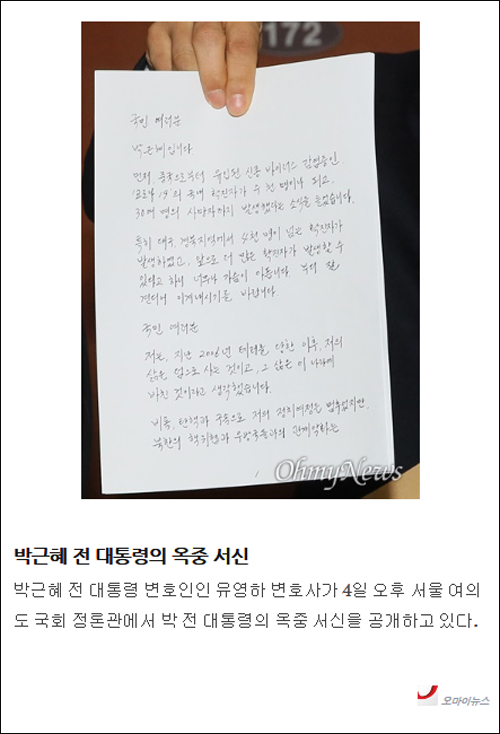 172
국민 여러분
박근혜입니다.
먼저 중국으로부터 유입된 신종 바이러스 감염증인
'코로나 19'의 국내 확진자가 수천 명이나 되고
30여 명의 사망자까지 발생했다는 소식을 들었습니다.
특히 대구·경북지역에서 4천 명이 넘는 확진자가
발생하였고, 앞으로 더 많은 확진자가 발생할 수
있다고 하니 너무나 가슴이 아픕니다. 부디 잘
견디어 이겨내시기를 바랍니다.
국민 여러분
저는, 지난 2006년 테러를 당한 이후, 저의
삶은 덤으로 사는 것이고, 그 삶은 이 나라에
바친 것이라고 생각했습니다.
비록, 탄핵과 구속으로 저의 정치여정은 멈추었지만,
북한의 핵위협과 우방국들과의 관계악화는
1
OhmyNews
박근혜 전 대통령의 옥중 서신
박근혜 전 대통령 변호인인 유영하 변호사가 4일 오후 서울 여의
도 국회 정론관에서 박 전 대통령의 옥중 서신을 공개하고 있다.
오마이뉴스